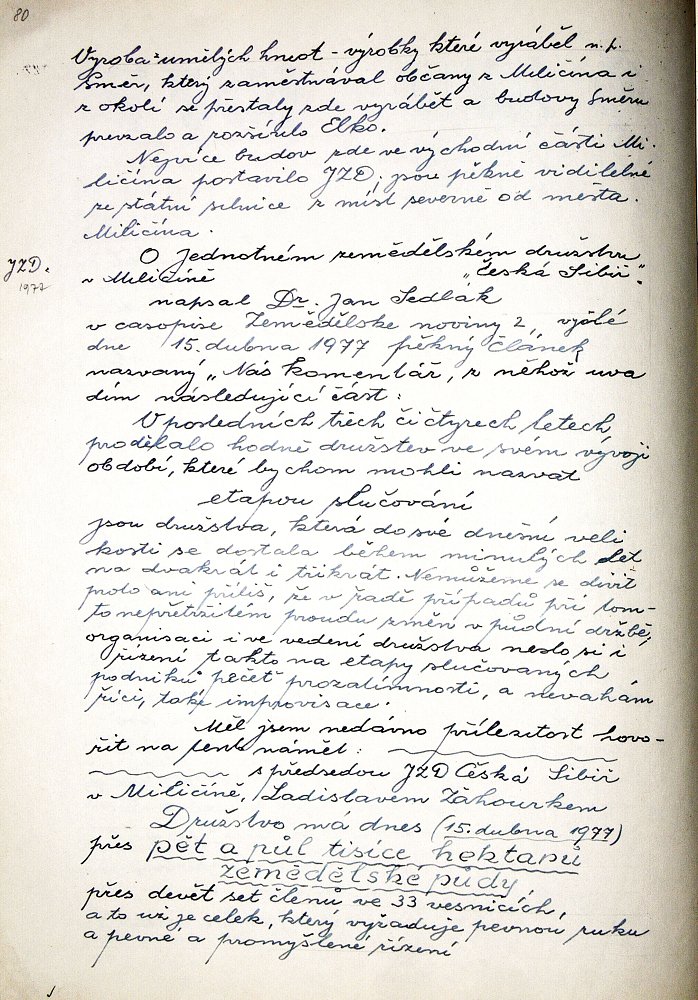 80
Vyroba umělých hmot - výrobky které vyráběl n. p.
Směr, který zaměstnával občany z Miličína i
z okolí se přestaly zde vyrábět a budovy Směru
převzalo a rozšířilo Elko.
Nejvíce budov zde ve východní části Mi-
ličína postavilo JZD; jsou pěkně viditelné
ze státní silnice z míst severně od města.
Miličína.
JZD.
1977
O Jednotném zemědělském družstvu
v Miličíně „Česká Sibiř".
napsal Dr. Jan Sedlák
v časopise Zemědělske noviny 2, vyšlé
dne 15. dubna 1977 pěkný článek
nazvaný „Náš komentář, z něhož uva
dím následující část:
V posledních třech či čtyrech letech
prodělalo hodně družstev ve svém vývoji
období, které bychom mohli nazvat
etapou slučování
jsou družstva, která do své dnešní veli
kosti se dostala během minulých let
na dvakrát i třikrát. Nemůžeme se divit
proto ani příliš, že v řadě případů při tom-
to nepřetržitém proudu změn v půdní držbě,
organisaci i ve vedení družstva neslo si i
řízení takto na etapy slučovaných
podniků pečeť prozatímnosti, a neváhám
říci, také improvisace.
Měl jsem nedávno příležitost hovo-
řit na tento námět:
s předsedou JZD Česká Sibiř
v Miličíně, Ladislavem Záhourkem
Družstvo má dnes (15. dubna 1977)
přes pět a půl tisíce hektarů
zemědělské půdy,
přes devět set členů ve 33 vesnicích,
a to už je celek, který vyžaduje pevnou ruku
a pevné a promyšlené řízení